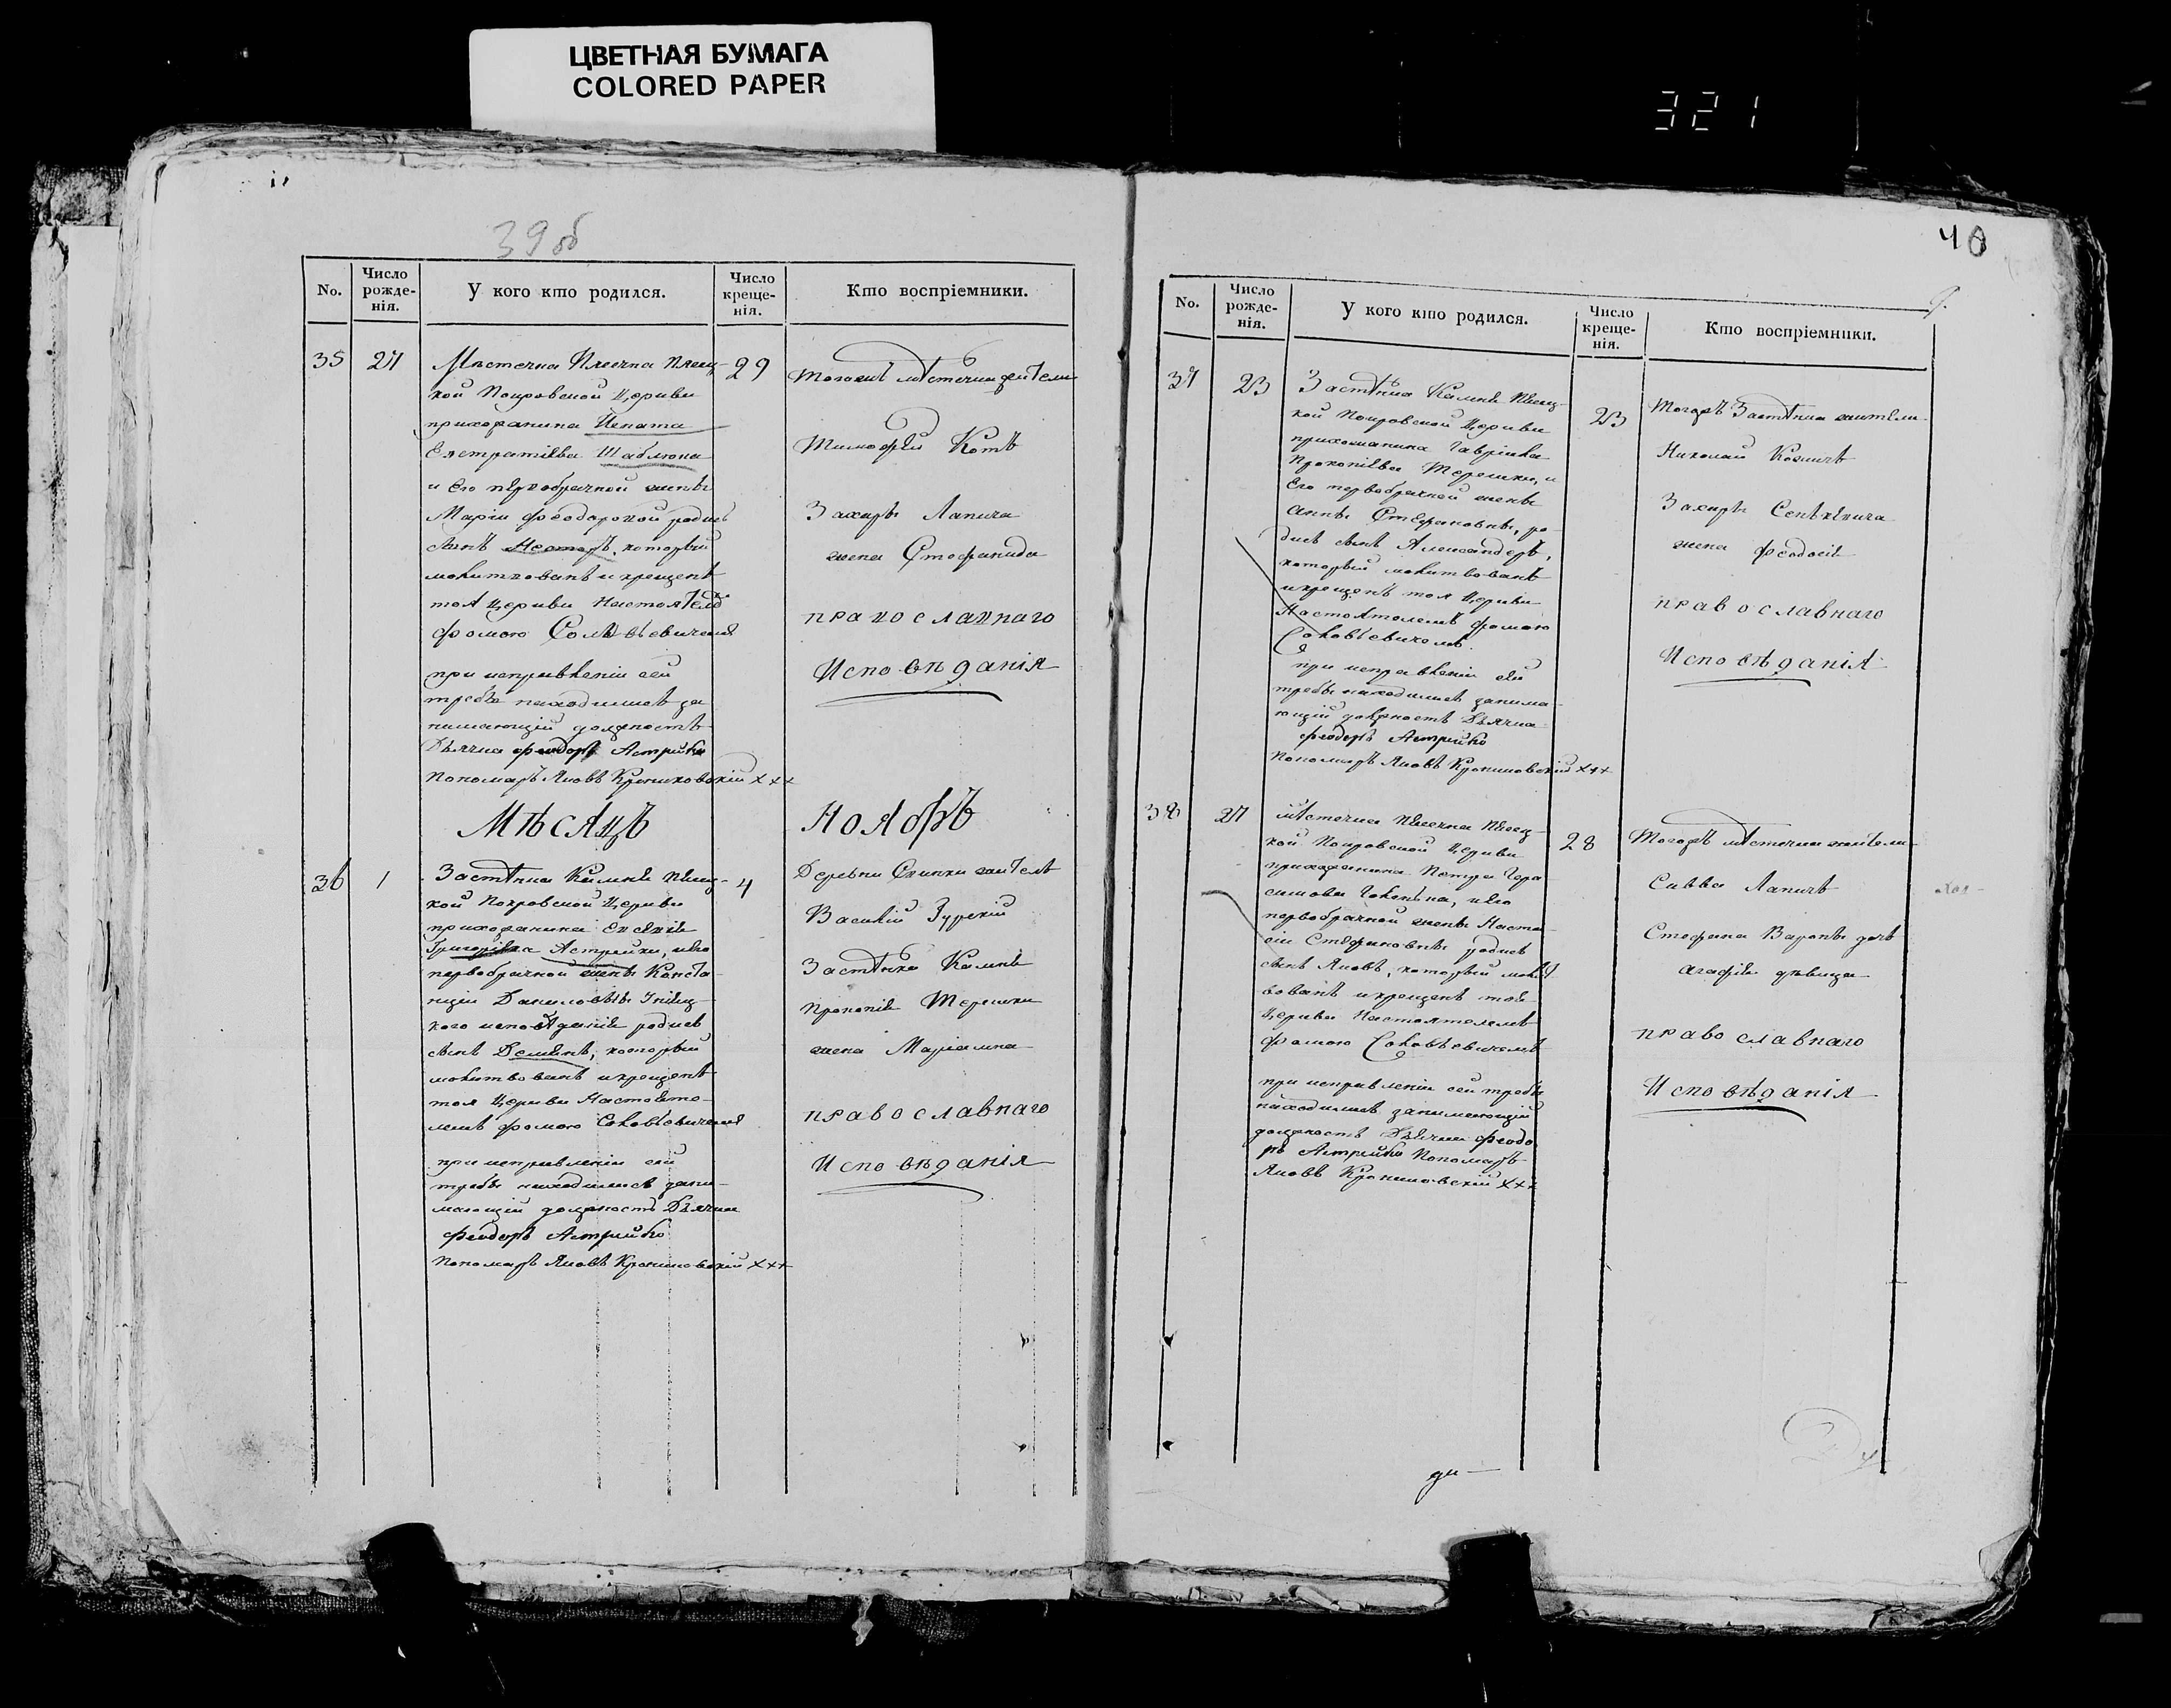 ЦВЕТНАЯ БУМАГА
COLORED PAPER
321
39 об
No.
Число рожде-нія.
У кого кто родился.
Число креще-нія.
Кто воспріемники.
35 27
29
кой Покровской Церкви
прихожанина Игната
Евстратіева Шаблюка
и его первобрачной жены
Маріи Феодоровой родился
сынъ Несторъ, который
молитвованъ и крещенъ
тоя Церкви Настоятелемъ
Фомою
при исправленіи сей
требы находились за
нимающій должность
Дьячка Феодоръ Астрейко
Пономаръ Яковъ ххх
Тогожъ мѣстечка жители
Тимофей Котъ
Захаръ Лапича
жена Стефанида
православнаго
Исповѣданія
Мѣсяцъ Ноябрь
36 1
Застѣнка Камня
4
кой Покровской Церкви
прихожанина Евсевія
Григоріева Астрейки, и его
первобрачной жены Конста
нціи Даниловны Уніяц-
кого исповѣданія родился
сынъ который
молитвованъ и крещенъ
тоя Церкви Настояте-
лемъ Фомою
при исправленіи сей
требы находились зани-
мающій должность Дьячка
Феодоръ Астрейко
Пономаръ Яковъ ххх
Деревни житель
Василій Зурскій
Застѣнка Камня
Прокопія Терешки
жена Маріанна
православнаго
Исповѣданія
40
No.
Число рожде-нія.
У кого кто родился.
Число креще-нія.
Кто воспріемники.
37 23
Застѣнка Камня
23
кой Покровской Церкви
прихожанина Гавріила
Прокопіева Терешки, и
его первобрачной жены
Анны Стефановны, ро-
дился сынъ Александеръ,
который молитвованъ
и крещенъ тоя Церкви
Настоятелемъ Фомою
при исправленіи сей
требы находились занима-
ющій должность Дьячка
Феодоръ Астрейко
Пономаръ Яковъ ххх
Тогожъ Застѣнка жители
Николай
Захаръ
жена Феодосія
православнаго
Исповѣданія
38 27
28
кой Покровской Церкви
прихожанина Петра Гера
симова и его
первобрачной жены Наста
сіи Стефановны родился
сынъ Яковъ, который молит
вованъ и крещенъ тоя
Церкви Настоятелемъ
Фомою
при исправленіи сей требы
находились занимающій
должность Дьячка Феодо
ръ Астрейко Пономаръ
Яковъ ххх
Тогожъ мѣстечка жители
Савва Лапичъ
Стефана дочь
Агафія дѣвица
православнаго
Исповѣданія